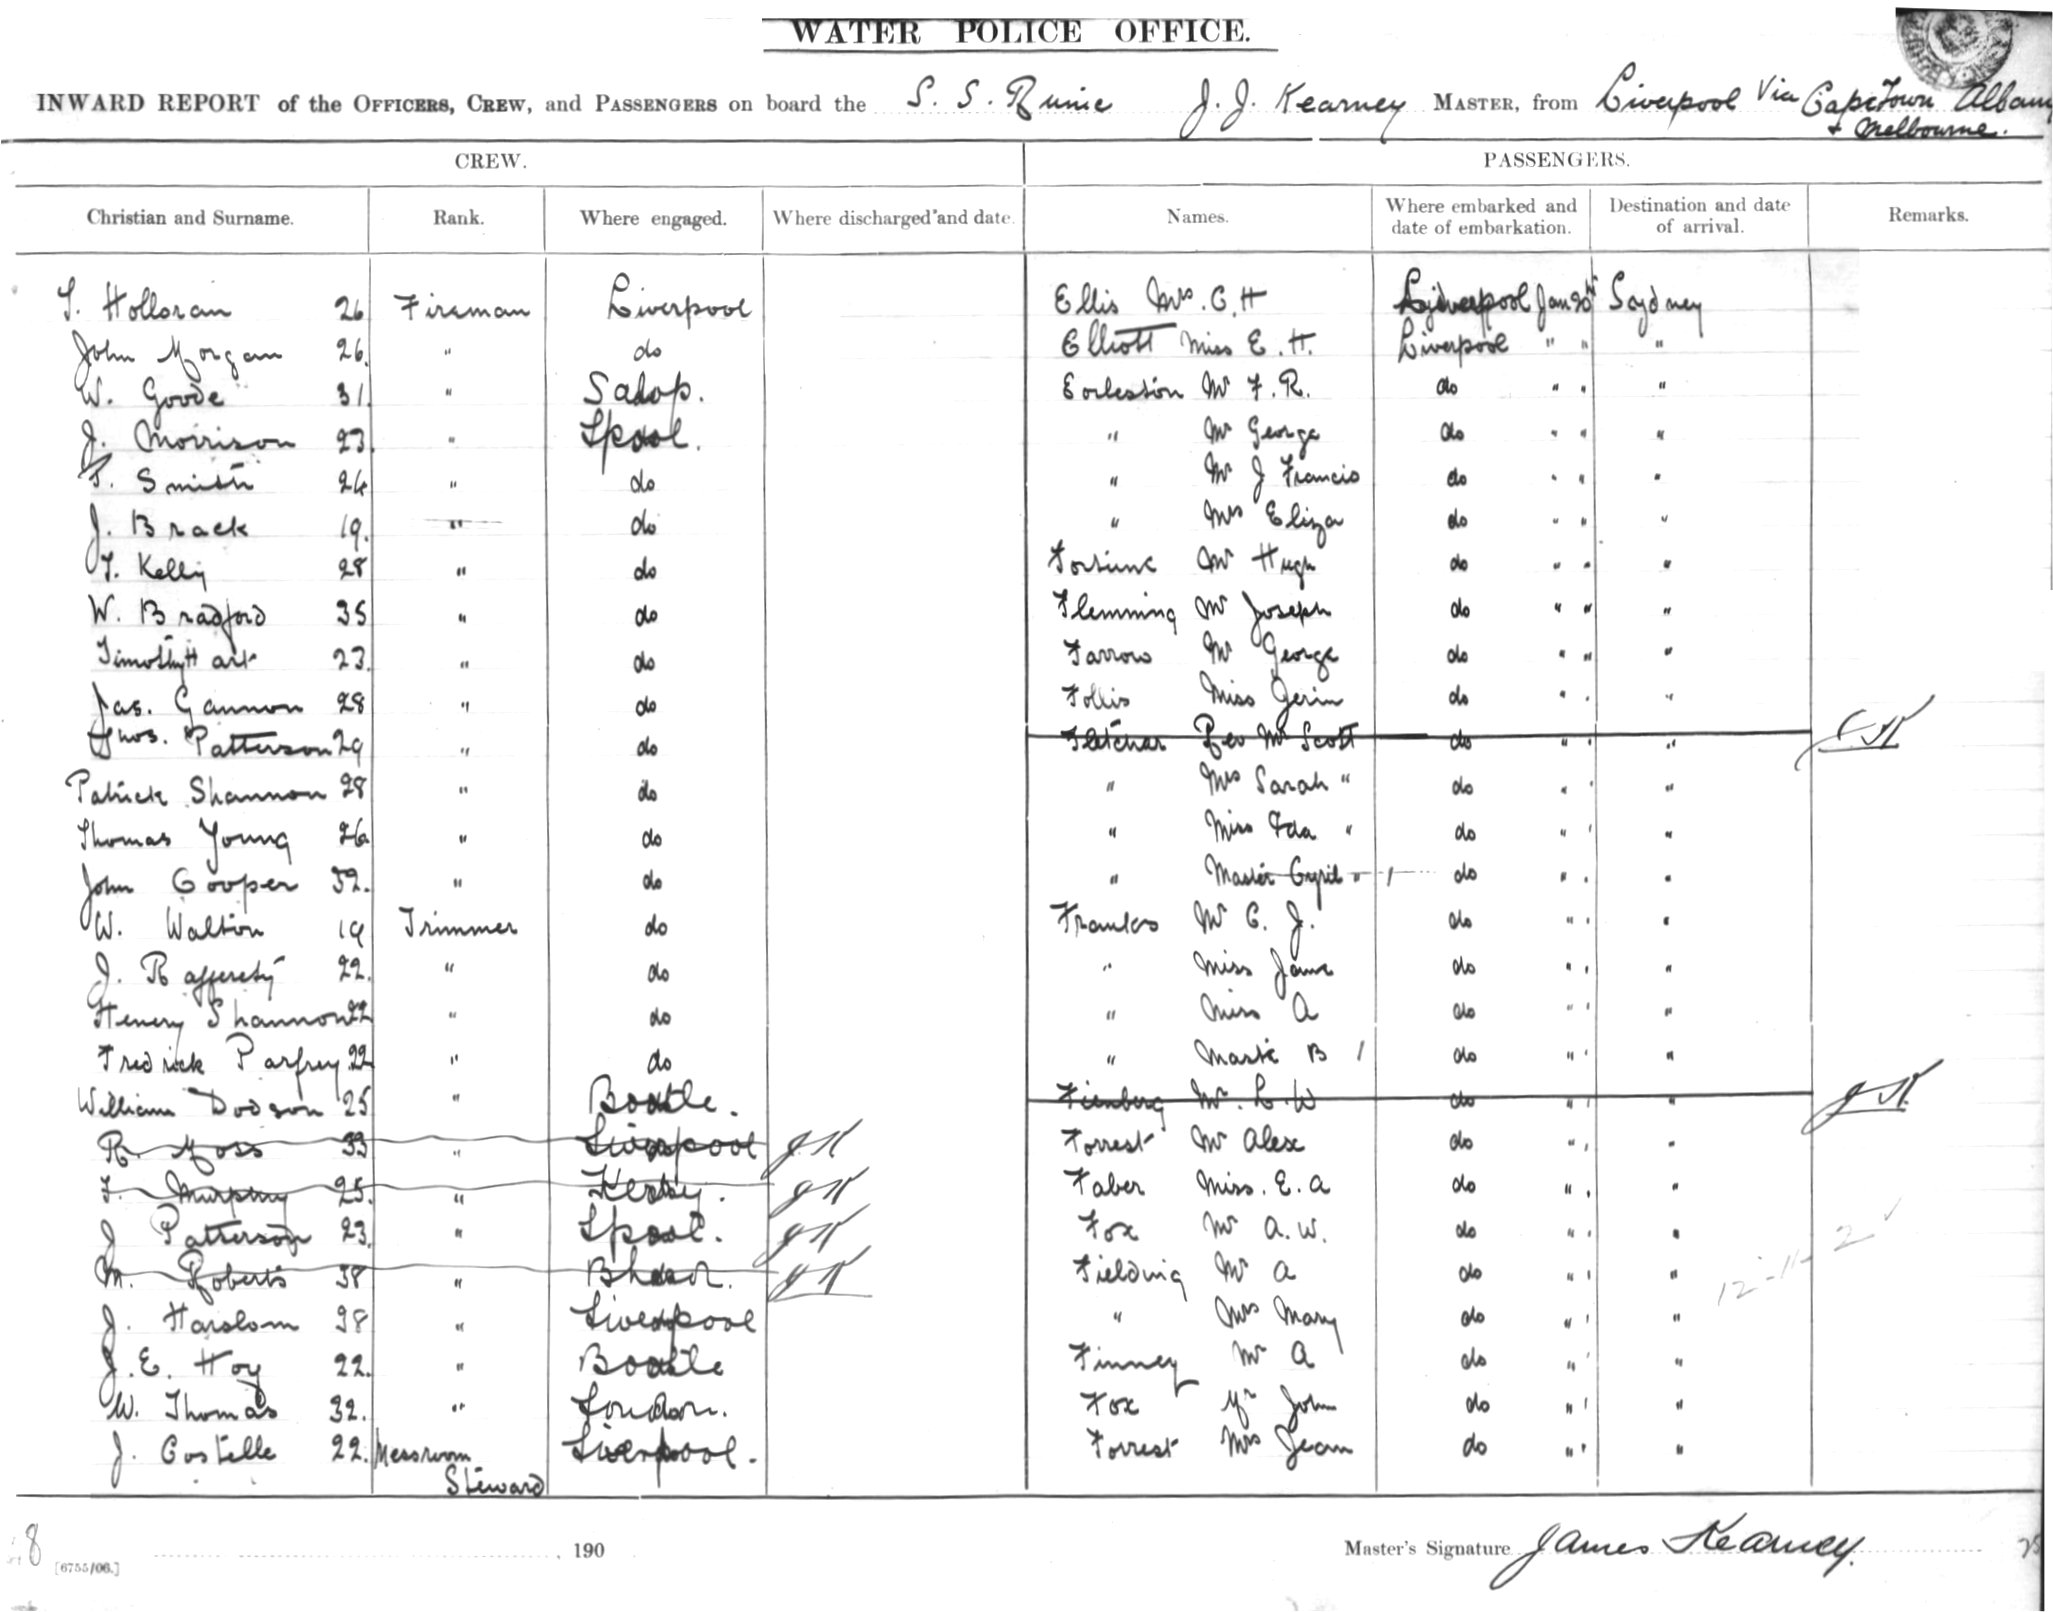 WATER POLICE OFFICE.
INWARD REPORT of the OFFICERS, CREW, and PASSENGERS on board the S. S. Runic J. J. Kearney MASTER, from Liverpool Via CapeTown Albany
+ Melbourne.
CREW. PASSENGERS.
Christian and Surname. Rank. Where engaged. Where discharged and date. Names. Where embarked and date of embarkation. Destination and date of arrival. Remarks.
T. Holloran 26 Fireman Liverpool Ellis Mrs. C. H Liverpool Jan 20 Sydney
John Morgan 26. " do Elliott Miss E. H. Liverpool " " "
W. Goode 31. " Salop. Eccleston Mr F. R. do " " "
J. Morrison 23. " Lpool. " Mr George do " " "
T. Smith 24 " do " Mr J Francis do " " "
J. Brack 19. " do " Mrs Eliza do " " "
T. Kelly 28 " do Fortune Mr Hugh do " " "
W. Bradford 35 " do Flemming Mr Joseph do " " "
Timothy Hart 23. " do Farrow Mr George do " " "
Jas. Gannon 28 " do Follis Miss do " " "
Thos. Patterson 29 " do Fletcher Rev Mr Scott do " " "
Patrick Shannon 28 " do " Mrs Sarah " do " " "
Thomas Young 26 " do " Miss Ida " do " " "
John Cooper 32. " do " Master Cyril " 1 do " " "
W. Walton 19 Trimmer do Franks Mr C. J. do " " "
J. Rafferety 22. " do " Miss Jane do " " "
Henery Shannon 22 " do " Miss A do " " "
Fredrick Parfrey 22 " do " Mastr B 1 do " " "
William Dodson 25 " Bootle. Fienberg Mr. L. W do " " "
R. Moss 33 " Liverpool Forrest Mr Alex do " " "
T. Murphy 25. " Faber Miss. E. A do " " "
J Patterson 23. " Lpool. Fox Mr A. W. do " " "
M. Roberts 38 " Bhead. Fielding Mr A do " " " 12-11-2
J. Haralom 38 " Liverpool " Mrs Mary do " " "
J. E. Hoy 22. " Bootle Finney Mr A do " " "
W. Thomas 32. " London. Fox Mr John do " " "
J. Costelle 22. Messroom Liverpool. Forrest Mrs Jean do " " "
Steward
8 190 Master's Signature James Kearney.
[6755/06.]